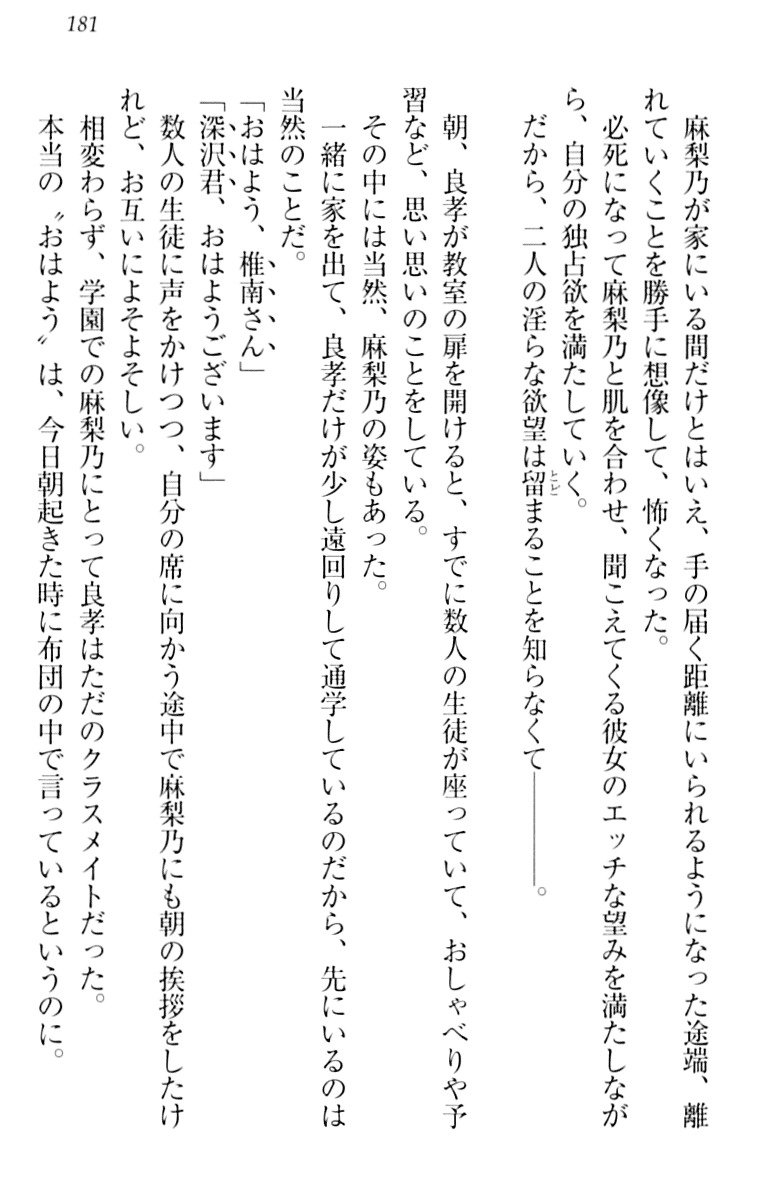 181
麻梨乃が家にいる間だけとはいえ、手の届く距離にいられるようになった途端、離
れていくことを勝手に想像して、怖くなった。
必死になって麻梨乃と肌を合わせ、聞こえてくる彼女のエッチな望みを満たしなが
ら、自分の独占欲を満たしていく。
だから、二人の淫らな欲望は留まることを知らなくて――――。
朝、良孝が教室の扉を開けると、すでに数人の生徒が座っていて、おしゃべりや予
習など、思い思いのことをしている。
その中には当然、麻梨乃の姿もあった。
一緒に家を出て、良孝だけが少し遠回りして通学しているのだから、先にいるのは
当然のことだ。
「おはよう、椎南さん」
「深沢君、おはようございます」
数人の生徒に声をかけつつ、自分の席に向かう途中で麻梨乃にも朝の挨拶をしたけ
れど、お互いによそよそしい。
相変わらず、学園での麻梨乃にとって良孝はただのクラスメイトだった。
本当の〝おはよう〟は、今日朝起きた時に布団の中で言っているというのに。